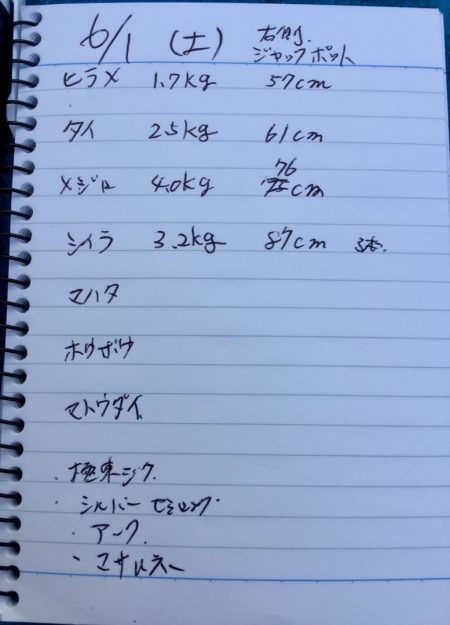 6/1 (土) 右側
ジャックポット
ヒラメ 1.7kg 57cm
タイ 2.5kg 61cm
メジロ 4.0kg 76cm
シイラ 3.2kg 87cm
マハタ
ホウボウ
マトウダイ
・極東ジグ
・シルバーセミロング
・アーク
・マサムネー